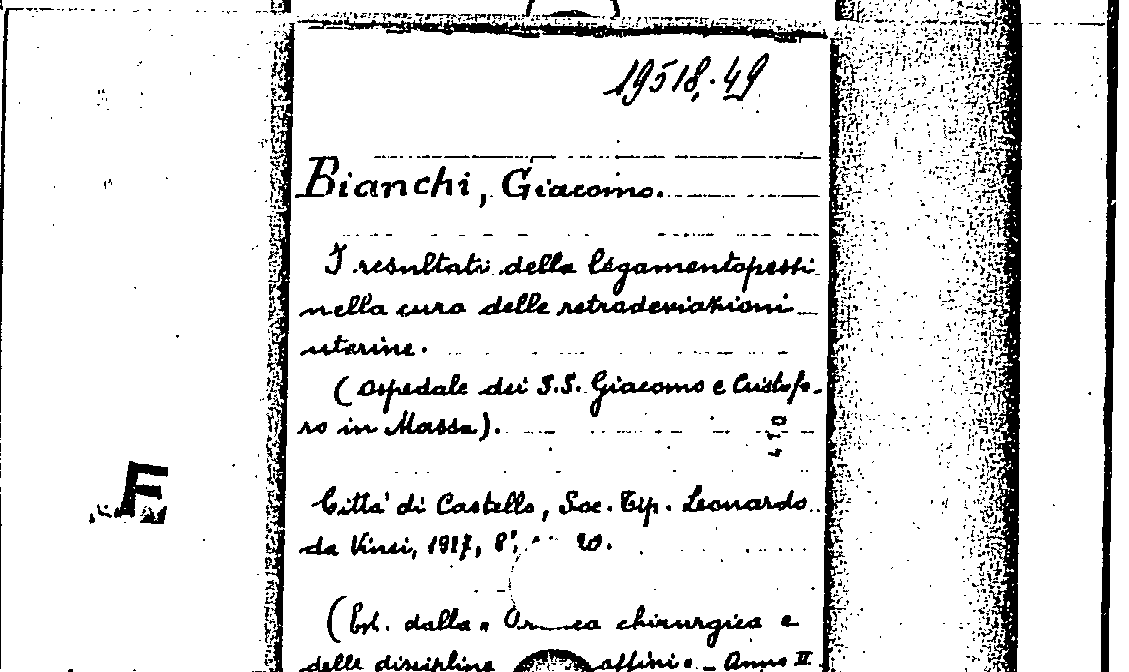 19518.49
Bianchi, Giacomo.
I resultati della legamentopessi
nella cura delle retrodeviazioni
uterine.
(Ospedale dei S.S. Giacomo e Cristofo-
ro in Massa).
470
Città di Castello, Soc. Tip. Leonardo
da Vinci, 1917, 8°, 20.
(Est. dalla " chirurgica e
delle discipline affini " - Anno II
E